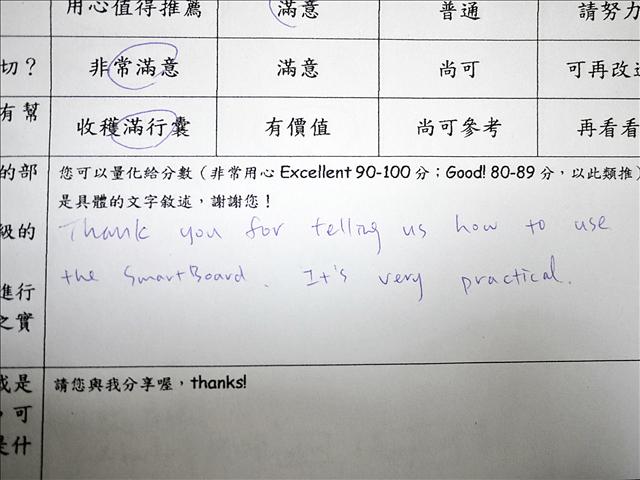 用心值得推薦 滿意 普通 請努力
切？ 非常滿意 滿意 尚可 可再改進
有幫 收穫滿行囊 有價值 尚可參考 再看看
的部 您可以量化給分數（非常用心 Excellent 90-100 分；Good! 80-89 分，以此類推）
是具體的文字敘述，謝謝您！
級的 Thank you for telling us how to use
the SmartBoard. It's very practical.
進行
之實
或是 請您與我分享喔，thanks!
，可
是什